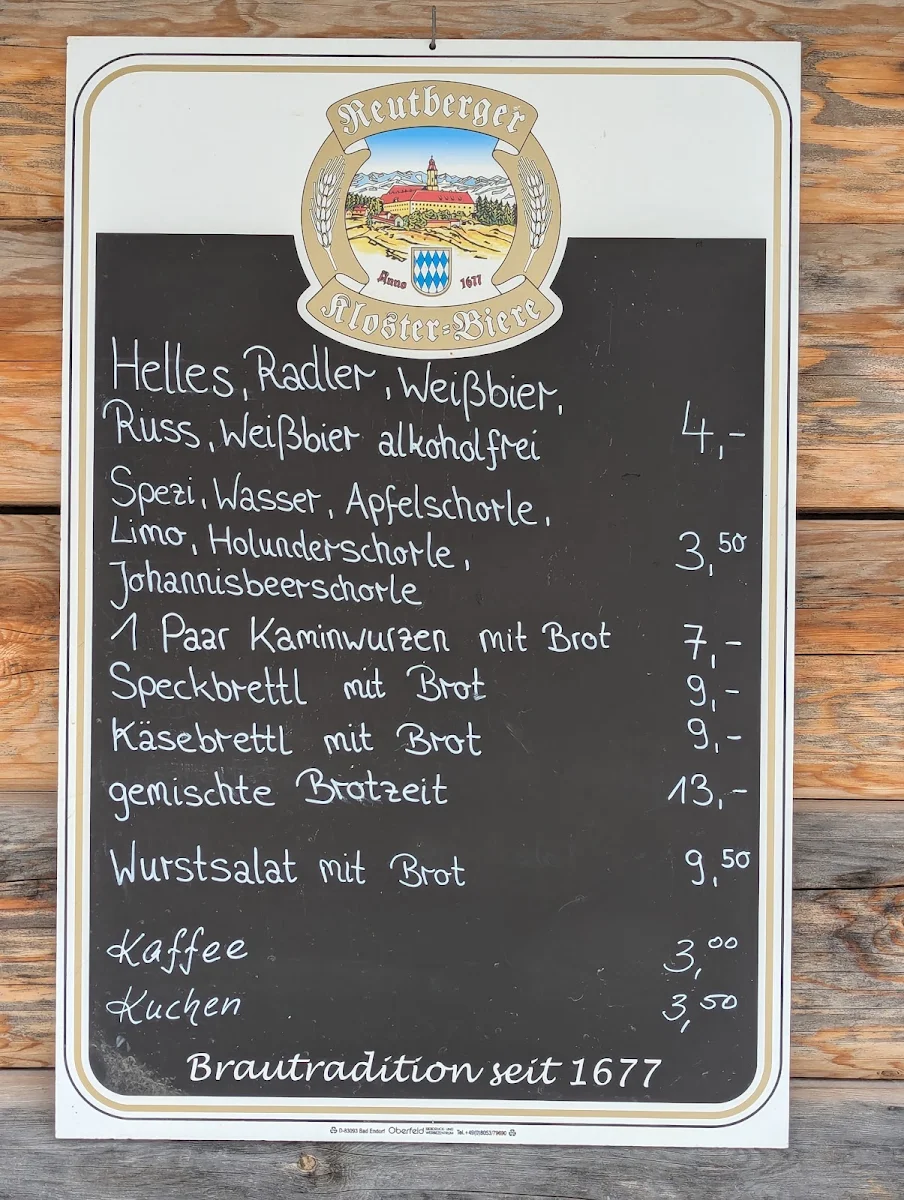 Reutberger
Anno 1677
Kloster-Biere
Helles, Radler, Weißbier,
Russ, Weißbier alkoholfrei 4,-
Spezi, Wasser, Apfelschorle,
Limo, Holunderschorle, 3,50
Johannisbeerschorle
1 Paar Kaminwurzen mit Brot 7,-
Speckbrettl mit Brot 9,-
Käsebrettl mit Brot 9,-
gemischte Brotzeit 13,-
Wurstsalat mit Brot 9,50
Kaffee 3,00
Kuchen 3,50
Brautradition seit 1677
D-83093 Bad Endorf Oberfeld Tel. +49(0)8053/79690